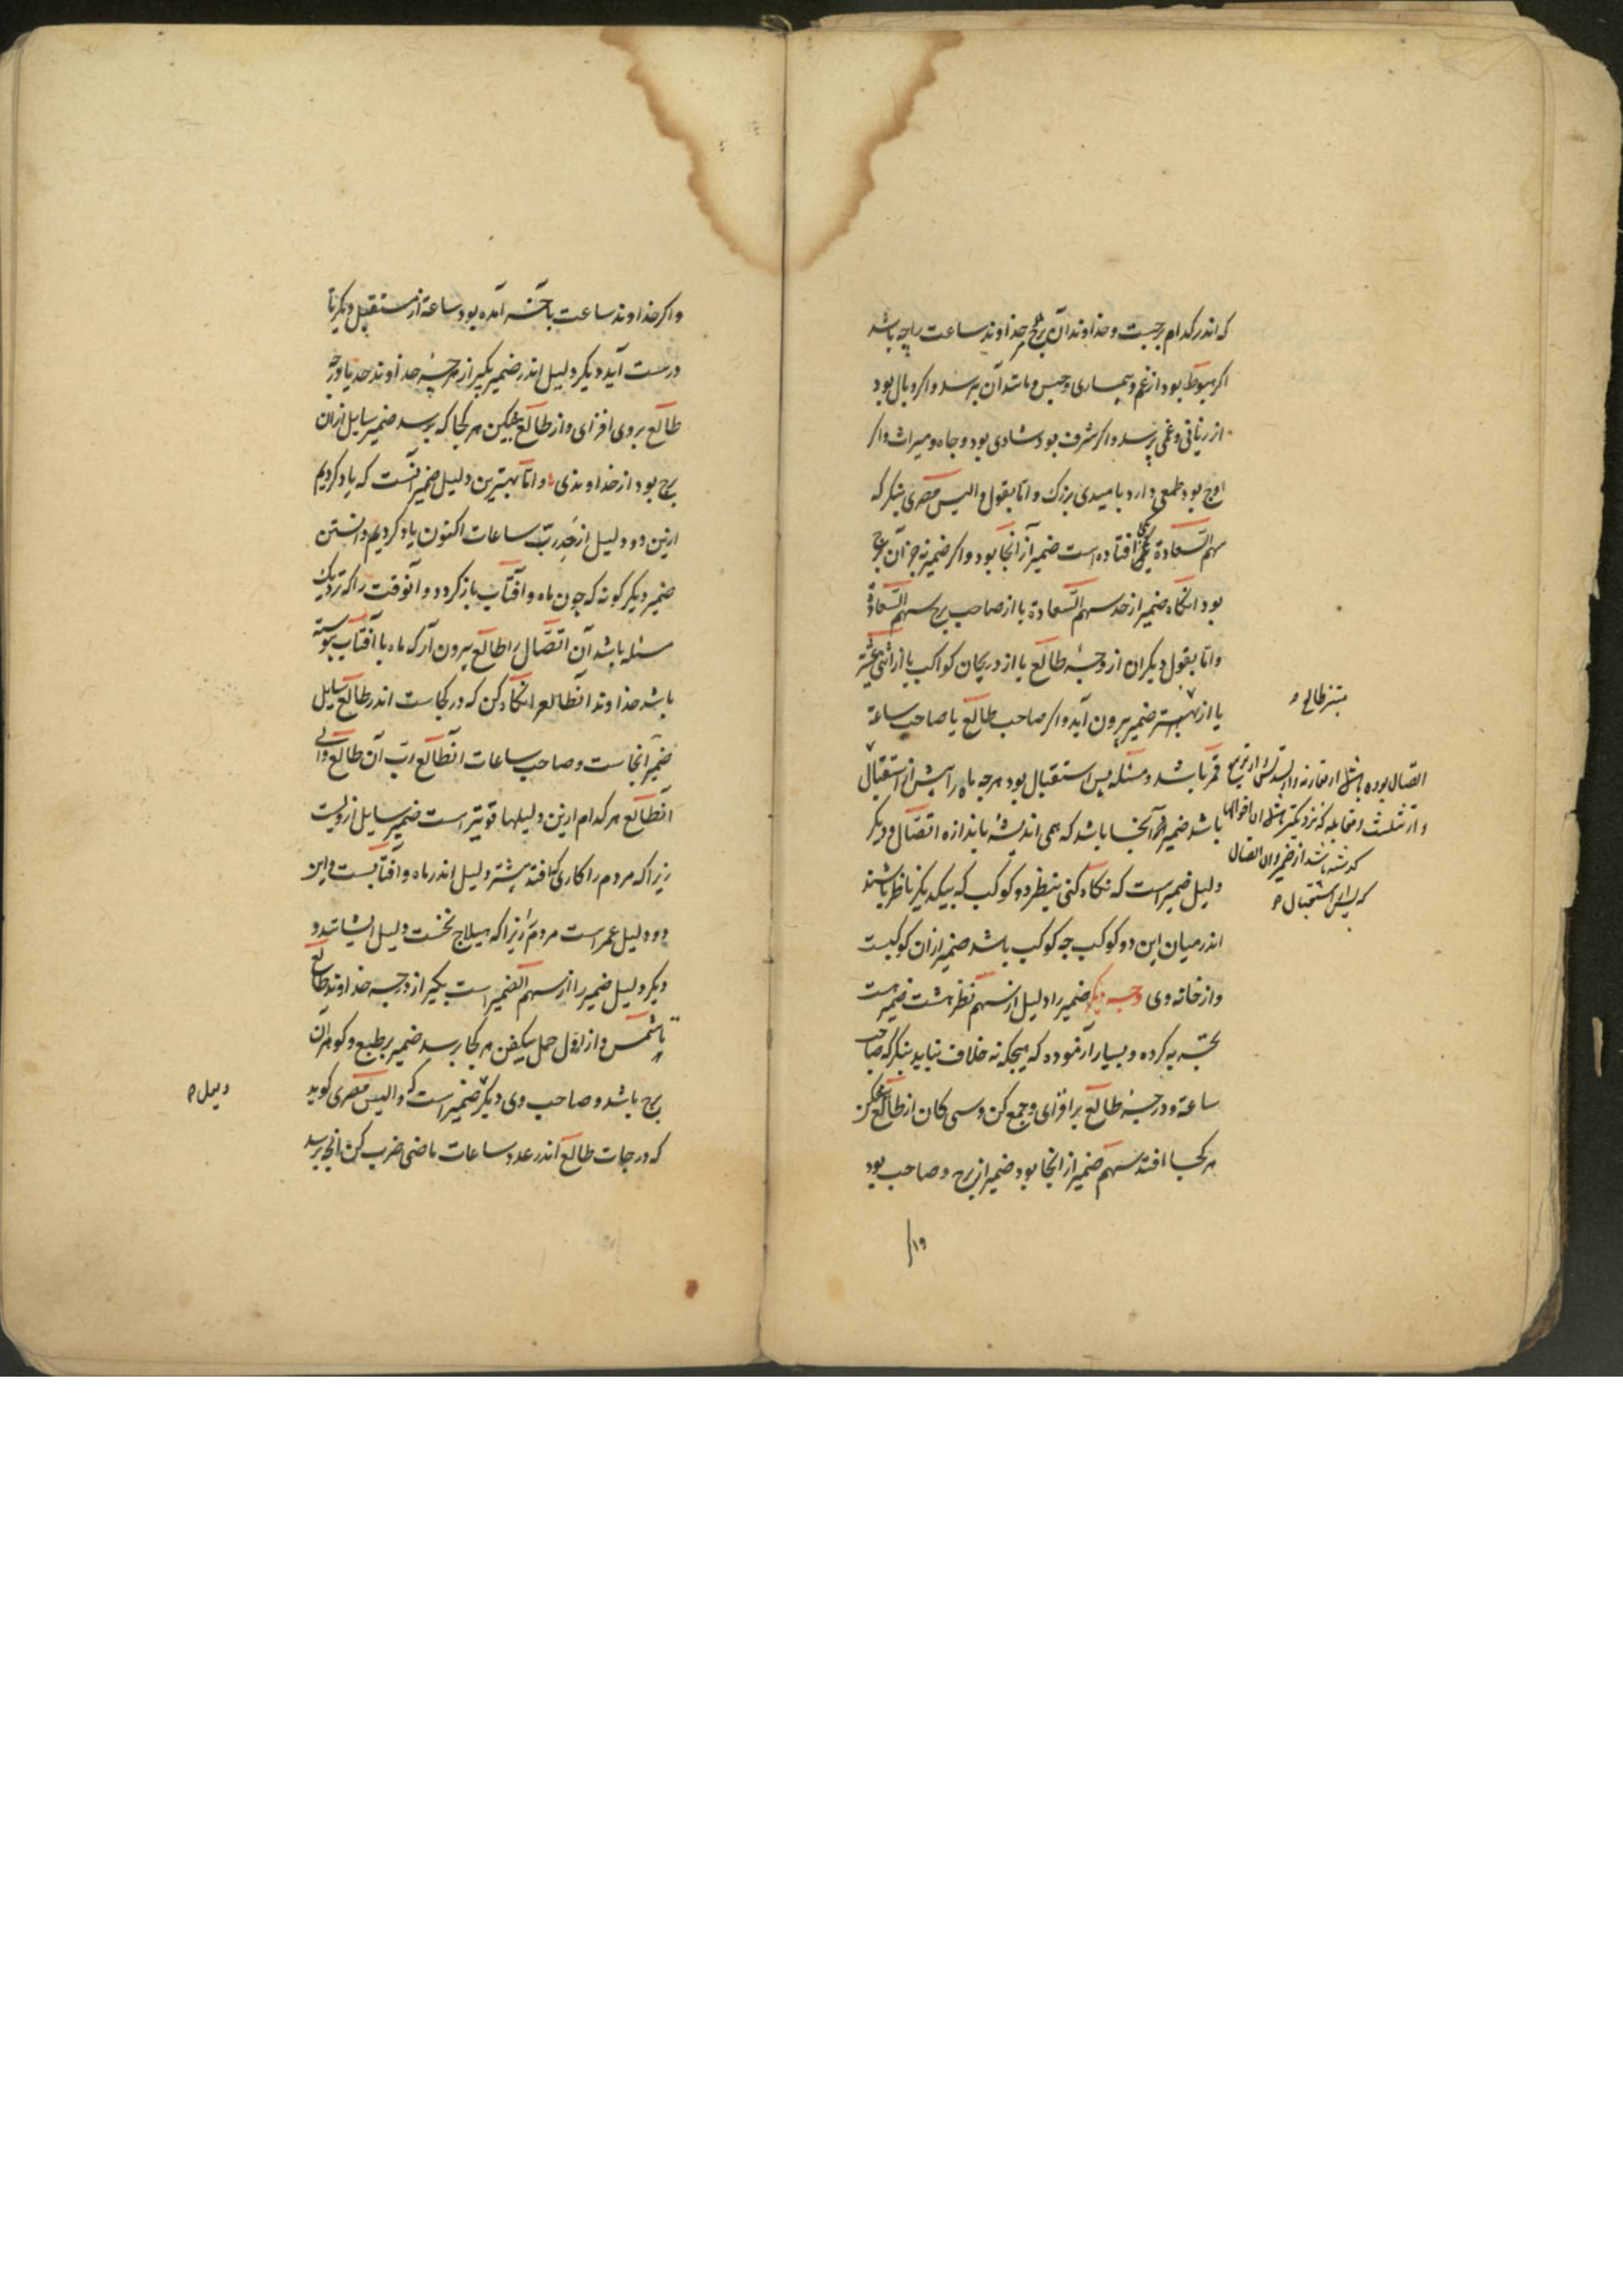 که اندر کدام برجست و خداوند آن برج مر خداوند ساعت را چه باشد
اکر هبوط بود از غم و بیماری و حبس و مانند آن پرسد و اکر وبال بود
از زیانی و غمی پرسد و اکر شرف بود شادی بود و جاه و میراث و اکر
اوج بود طمعی دارد بامیدی بزرک و اما بقول والیس مصری بنکر که
سهم السعادة افتاده است ضمیر از آنجا بود و اکر ضمیر نه جز آن برج
بود انکاه ضمیر از حد سهم السعادة یا از صاحب برج سهم السعادة
و اما بقول دیکران از وجه طالع یا از دریجان کواکب یا از اثنی عشریه
یا از نهبهر ضمیر بیرون آید و اکر صاحب طالع یا صاحب ساعة
قمر باشد و مسئله پس استقبال بود هرچه ماه را پیش از استقبال
باشد ضمیر آنجا باشد که همی اندیشد باندازه اتصال و دیکر
دلیل ضمیر است که نکاه کنی بنظر دو کوکب که بیکدیکر ناظر باشند
اندر میان این دو کوکب چه کوکب باشد ضمیر از آن کوکبست
و از خانه وی وجه دیکر ضمیر را دلیل از سهم نظر هشت ضمیر است
تجربه کرده و بسیار آزموده که هیچکونه خلاف نیاید بنکر که صاحب
ساعة و درجه طالع بر افزای و جمع کن و سی کان از طالع بیفکن
هر کجا افتد سهم ضمیر از آنجا بود ضمیر از برج و صاحب بود
بیتنر طالع
اتصال بوده باشد از مقارنه و از تسدیس و از تربیع
و از تثلیث و مقابله که نزدیکتر باشد
کذشته باشد از ضمیر و ان اتصال
که پس استقبال
۱۹
و اکر خداوند ساعت بآخر آمده بود ساعة از مستقبل و بکر تا
درست آید دیکر دلیل اندر ضمیر بکیر از درجه خداوند حد تا درجه
طالع بروی افزای و از طالع بیفکن هر کجا که برسد ضمیر سایل از آن
برج بود از خداوندی و اما بهترین دلیل ضمیر آنست که یاد کردیم
ازین دو دلیل از رب ساعات اکنون یاد کردیم دانستن
ضمیر دیکر کونه که چون ماه و آفتاب باز کردد و آنوقت را که نزدیک
مسئله باشد آن اتصال را طالع بیرون آر که ماه با آفتاب پیوسته
باشد خداوند آنطالع را نکاه کن که در کجاست اندر طالع سایل
ضمیر آنجاست و صاحب ساعات آنطالع رب آن طالع والی
آنطالع هر کدام ازین دلیلها قویتر است ضمیر سایل از ویست
زیرا که مردم را کاری که افتد بیشتر دلیل اندر ماه و آفتابست و این
دو دلیل عمر است مردم را زیرا که هیلاج نخست دلیل ایشانند و
دیکر دلیل ضمیر را از سهم الضمیر است بکیر از درجه خداوند طالع
تا شمس و از اول حمل بیفکن هر کجا برسد ضمیر بر طبع و کوهر آن
برج باشد و صاحب وی دیکر ضمیر است که والیس مصری کوید
که درجات طالع اندر عدد ساعات ماضی ضرب کن آنچ برسد
دلیل